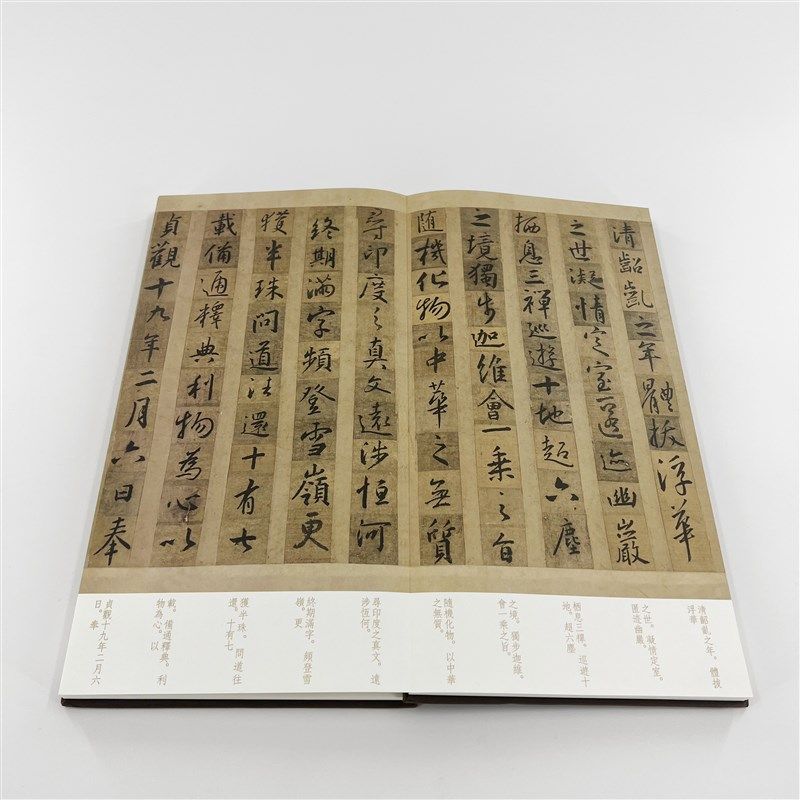 清齠齓之年體拔浮華
之世凝情定室匿迹幽巖
栖息三禪巡遊十地超六塵
之境獨步迦維會一乘之旨
随機化物以中華之無質
尋印度之真文遠涉恒河
終期滿字頻登雪嶺更
獲半珠問道往還十有七
載備通釋典利物為心以
貞觀十九年二月六日奉
清齠齓之年。體拔
浮華
之世。凝情定室。
匿迹幽巖。
栖息三禪。巡遊十
地。超六塵
之境。獨步迦維。
會一乘之旨。
隨機化物。以中華
之無質。
尋印度之真文。遠
涉恆河。
終期滿字。頻登雪
嶺。更
獲半珠。問道往
還。十有七
載。備通釋典。利
物為心。以
貞觀十九年二月六
日。奉